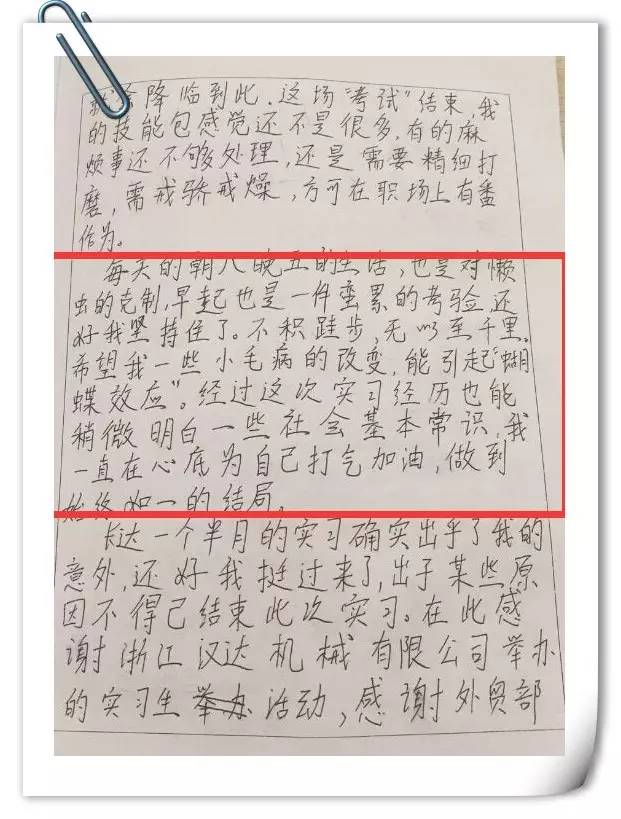 降临到此.这场"考试"结束,我
的技能包感觉还不是很多,有的麻
烦事还不够处理,还是需要精细打
磨,需戒骄戒燥,方可在职场上有番
作为。
每天的朝八晚五的生活,也是对懒
虫的克制,早起也是一件蛮累的考验,还
好我坚持住了。不积跬步,无以至千里。
希望我一些小毛病的改变,能引起"蝴
蝶效应"。经过这次实习经历也能
稍微明白一些社会基本常识,我
一直在心底为自己打气加油,做到
始终如一的结局。
长达一个半月的实习确实出乎了我的
意外,还好我挺过来了,出于某些原
因不得已结束此次实习。在此感
谢浙江汉达机械有限公司举办
的实习生举办活动,感谢外贸部